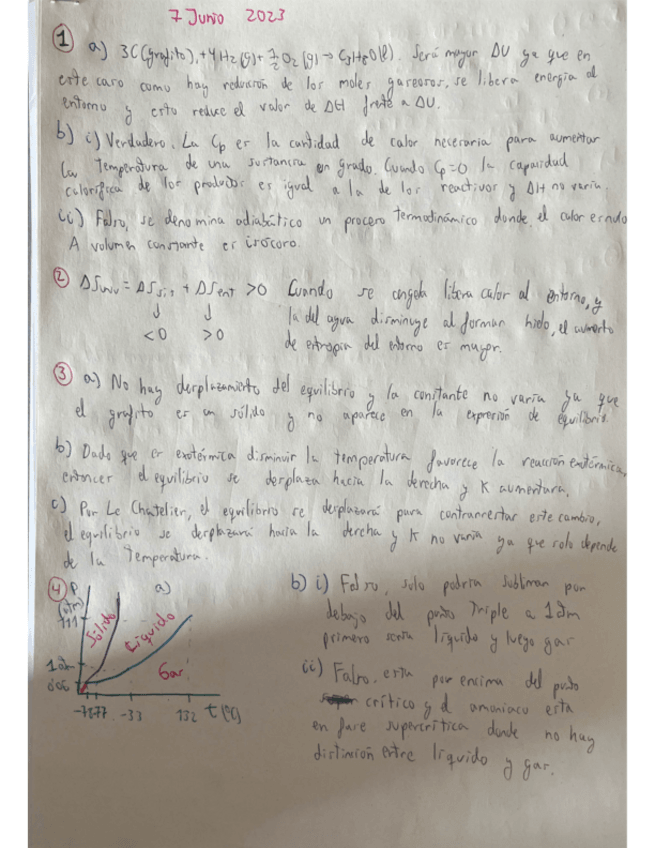 7 Junio 2023
① a) 3C(grafito),+4H2(g)+7/2O2(g)→C3H8O(l). Será mayor ΔU ya que en
este caso como hay reducción de los moles gaseosos, se libera energía al
entorno y esto reduce el valor de ΔH frente a ΔU.
b) i) Verdadero. La Cp es la cantidad de calor necesaria para aumentar
la temperatura de una sustancia un grado. Cuando Cp=0 la capacidad
calorífica de los productos es igual a la de los reactivos y ΔH no varía.
ii) Falso, se denomina adiabático un proceso termodinámico donde el calor es nulo
A volumen constante es isócoro.
② ΔSuniv = ΔSsis + ΔSent >0 Cuando se congela libera calor al entorno, y
↓ ↓ la del agua disminuye al forman hielo, el aumento
<0 >0 de entropía del entorno es mayor.
③ a) No hay desplazamiento del equilibrio y la constante no varía ya que
el grafito es un sólido y no aparece en la expresión de equilibrio.
b) Dado que es exotérmica disminuir la temperatura favorece la reacción exotérmica,
entonces el equilibrio se desplaza hacia la derecha y K aumentara.
c) Por Le Chatelier, el equilibrio se desplazará para contrarrestar este cambio,
el equilibrio se desplazará hacia la derecha y K no varía ya que solo depende
de la temperatura.
④ a)
P
(atm)
111
1atm
Sólido
Líquido
Gas
-78 -77 -33 132 t(ºC)
b) i) Falso, solo podría sublimar por
debajo del punto triple a 1atm
primero sería líquido y luego gas
ii) Falso. esta por encima del punto
crítico y el amoniaco esta
en fase supercrítica donde no hay
distinción entre líquido y gas.